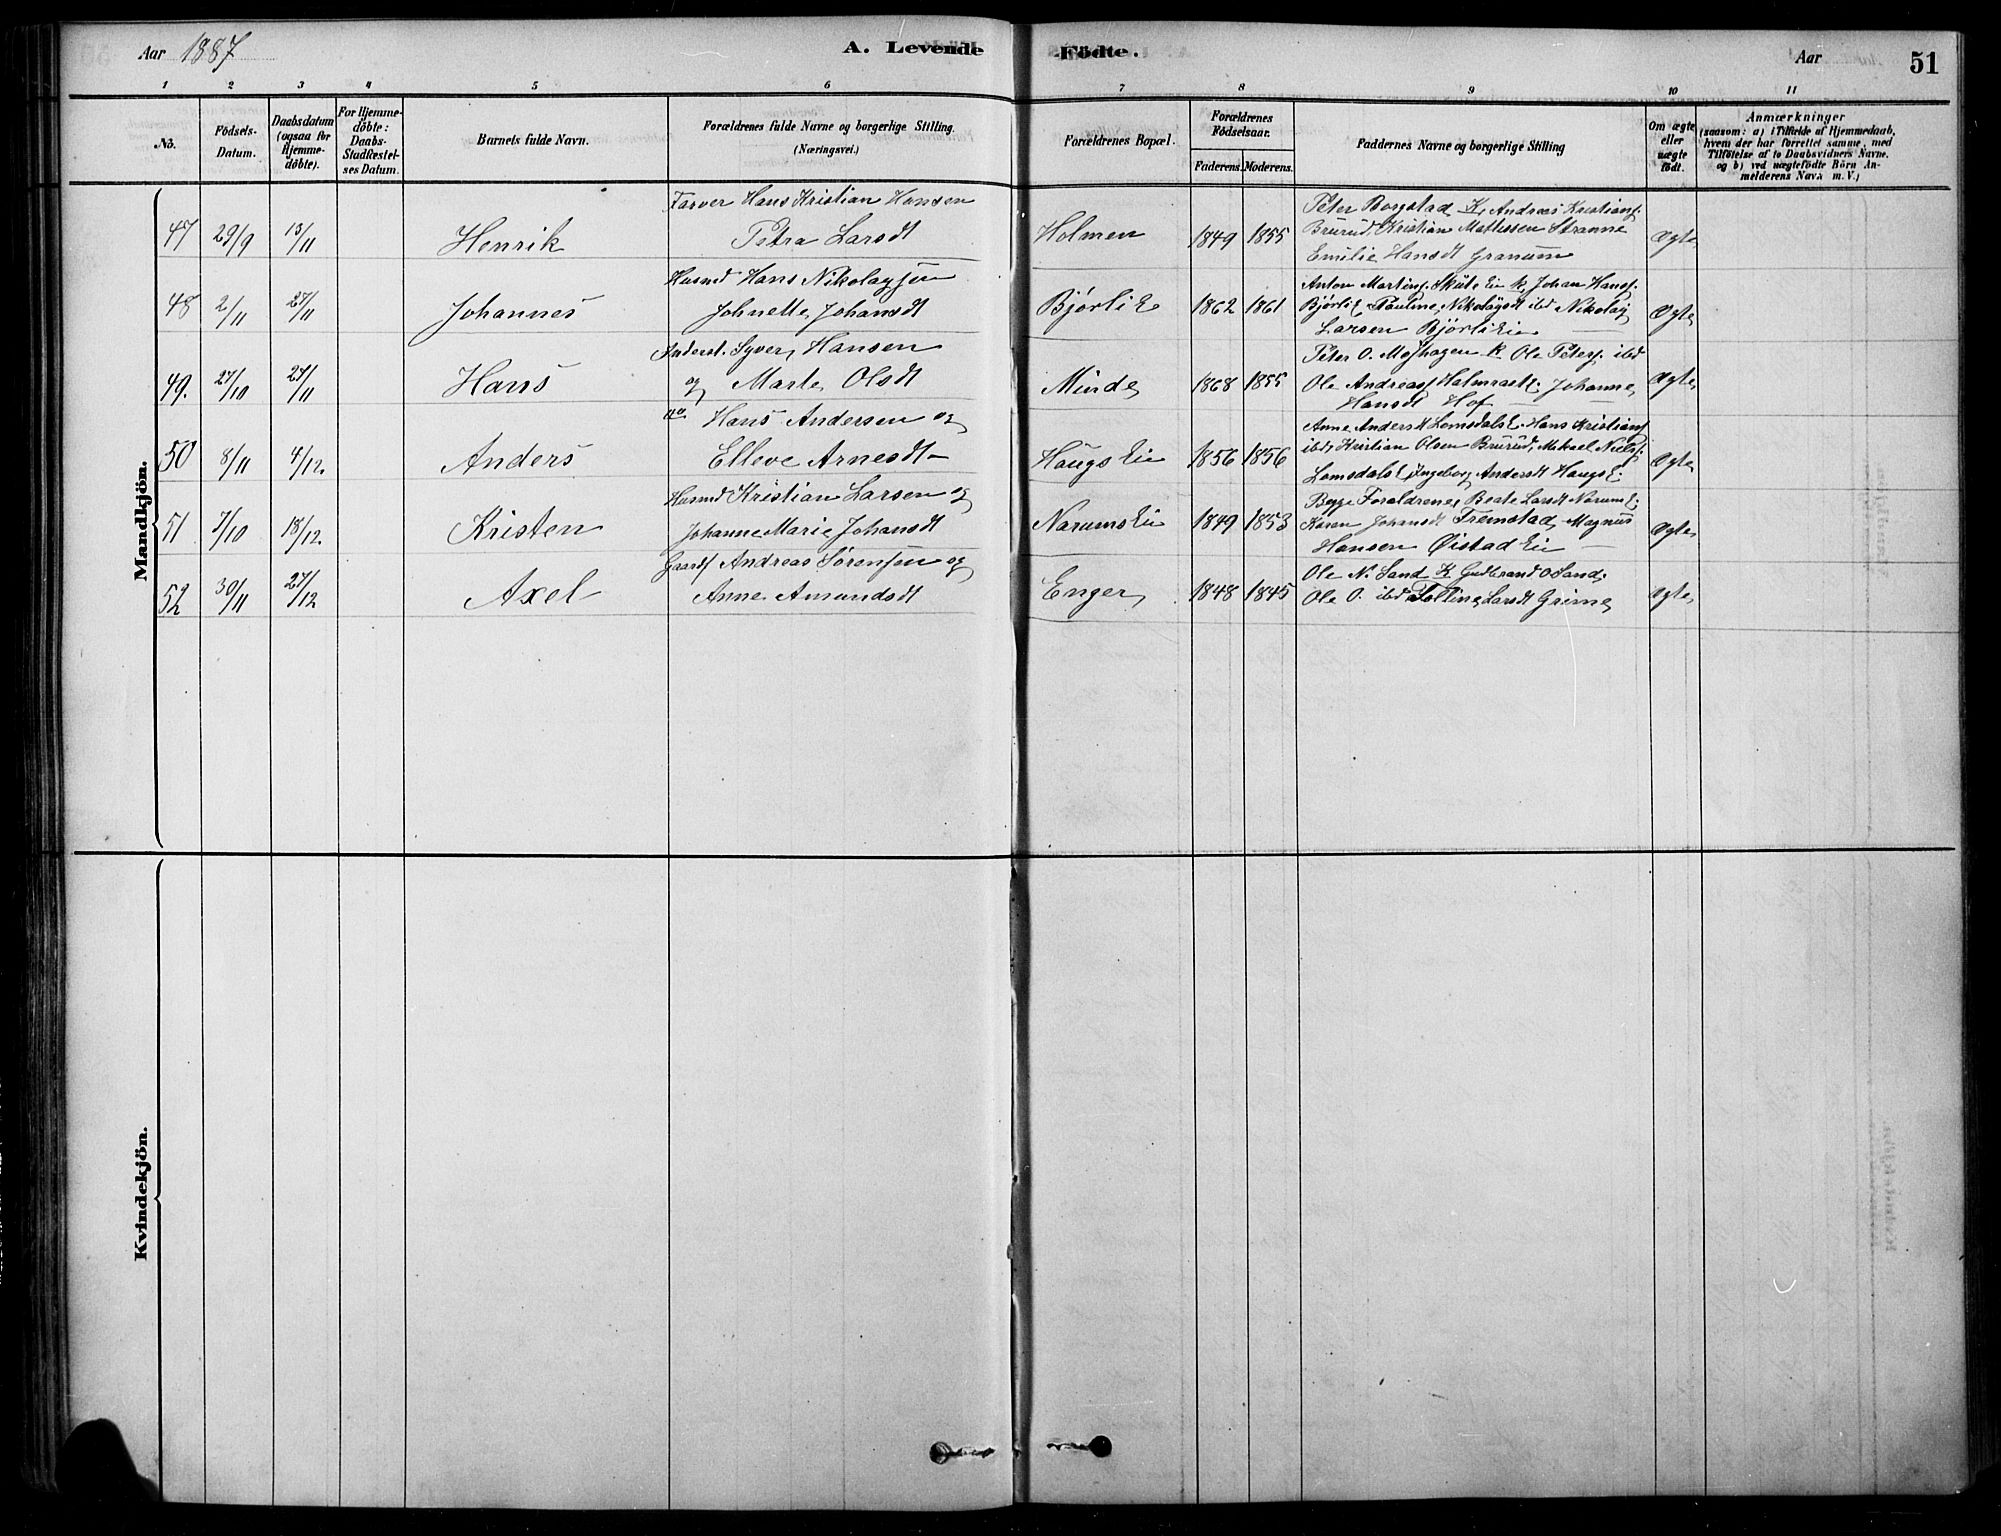 Aar 1887
A. Levende
Födte.
Aar
51
1 2 3 4 5 6 7 8 9 10 11
No.
Födsels-Datum.
Daabsdatum (ogsaa for Hjemme-döbte).
For Hjemme-döbte: Daabs-Stadfæstel-ses Datum.
Barnets fulde Navn.
Forældrenes fulde Navne og borgerlige Stilling.
(Næringsvei.)
Forældrenes Bopæl.
Forældrenes Födselsaar.
Faderens. Moderens.
Faddernes Navne og borgerlige Stilling
Om ægte eller uægte födt.
Anmærkninger
(saasom: a) i Tilfælde af Hjemmedaab,
hvem der har forrettet samme, med
Tilföielse af to Daabsvidners Navne.
og b) ved uægtefödte Börn An-
melderens Navn m. V.)
Mandkjön.
47 29/9 13/11 Henrik
Farver Hans Kristian Hansen
Petra Larsdt
Holmen 1849 1855
Peter Borgstad K, Andreas Kristians.
Brurud, Kristian Mathissen Stranne
Emilie Hansdt Granum
Ægte
48 2/11 27/11 Johannes
Husmd Hans Nikolaysen
Johnette Johansdt
Bjørli E 1862 1861
Anton Martins. Skute Eie K, Johan Hans.
Bjørli E, Pauline Nikolaysdt ibd Nikolay
Larsen Bjørli Eie
Ægte
49. 27/10 27/11 Hans
Anderst. Syver Hansen
og Marte Olsdt
Minde 1868 1855
Peter O. Mæhagen K Ole Peters. ibd
Ole Andreas. Johanne
Hansdt Hof
Ægte
50 8/11 4/12. Anders
do Hans Andersen og
Elleve Arnesdt
Haugs Eie 1856 1856
Anne Anders K Lomsdals E. Hans Kristians
ibd, Kristian Olsen Brurud, Mikael Niels.
Lomsdals E, Ingeborg Andersdt Haugs E.
Ægte
51 7/10 18/12. Kristen
Husmd Kristian Larsen og
Johanne Marie Johansdt
Narums Eie 1849 1853
Begge Forældrene, Beate Larsdt Narum E.
Karen Johansdt Fremstad Magnus
Hansen Øistad Eie
Ægte
52 30/11 27/12 Axel
Gaardf Andreas Sørensen og
Anne Amundsdt
Enger 1848 1845
Ole N. Sand K Gudbrand O Sand.
Ole O. ibd Larsdt Grime
Ægte
Kvindekjön.